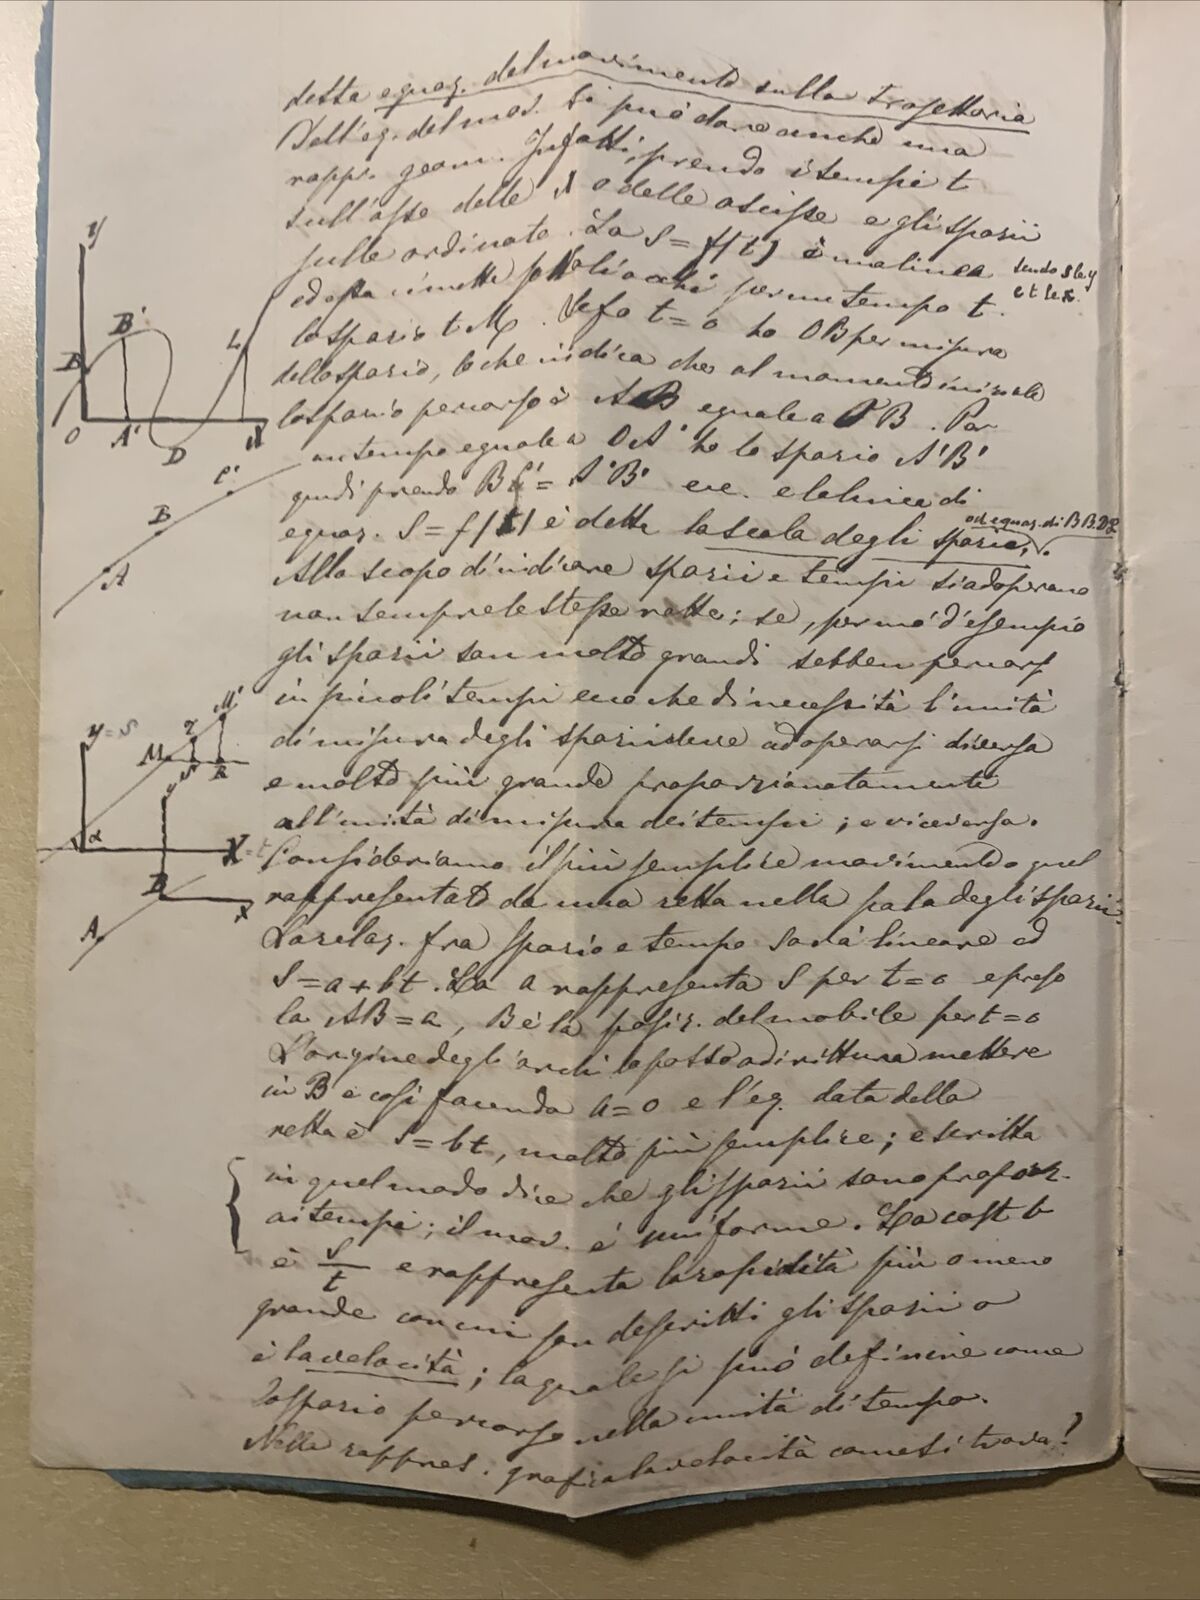 detta equaz. del movimento sulla trajettoria
Dell'eq. del mov. si può dare anche una
rappr. geom. Infatti, prendo i tempi t
sull'asse delle X o delle ascisse e gli spazii
sulle ordinate. La S = f(t) è una linea
sendo S le y
e t le x.
ed essa ci mette sott'occhi per un tempo t.
lo spazio t M. Se fo t = 0 ho OB per misura
dello spazio, lo che indica che al momento iniziale
lo spazio percorso è AB eguale a OB. Per
un tempo eguale a OA' ho lo spazio A'B'
quindi prendo BC' = A'B' ecc. e la linea di
equaz. S = f(t) è detta la scala degli spazii.
od equaz. di BB'DL
Allo scopo d'indicare spazii e tempi si adoperano
non sempre le stesse rette; se, per mo' d'esempio
gli spazii son molto grandi sebben percorsi
in piccoli tempi ecco che di necessità l'unità
di misura degli spazii deve adoperarsi diversa
e molto più grande proporzionatamente
all'unità di misura dei tempi; e viceversa.
Consideriamo il più semplice movimento o quel
rappresentato da una retta nella scala degli spazii.
La relaz. fra spazio e tempo sarà lineare ed
S = a + bt. La a rappresenta S per t = 0 e preso
la AB = a, B è la posiz. del mobile per t = 0
L'origine degli archi la posso addirittura mettere
in B e così facendo a = 0 e l'eq. data della
retta è S = bt, molto più semplice; e scritta
in quel modo dice che gli spazii sono proporz.
ai tempi; il mov. è uniforme. La cost. b
è s/t e rappresenta la rapidità più o meno
grande con cui son descritti gli spazii o
è la velocità; la quale si può definire come
lo spazio percorso nella unità di tempo.
Nella rappres. grafica la velocità come si trova?
y
B'
B
L
O
A'
D
X
C'
B
A
y = s
M'
M
R
α
X = t
B
x
A